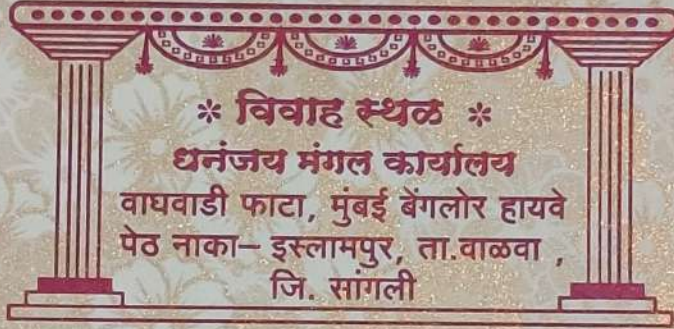 * विवाह स्थळ *
धनंजय मंगल कार्यालय
वाघवाडी फाटा, मुंबई बेंगलोर हायवे
पेठ नाका– इस्लामपुर, ता.वाळवा ,
जि. सांगली